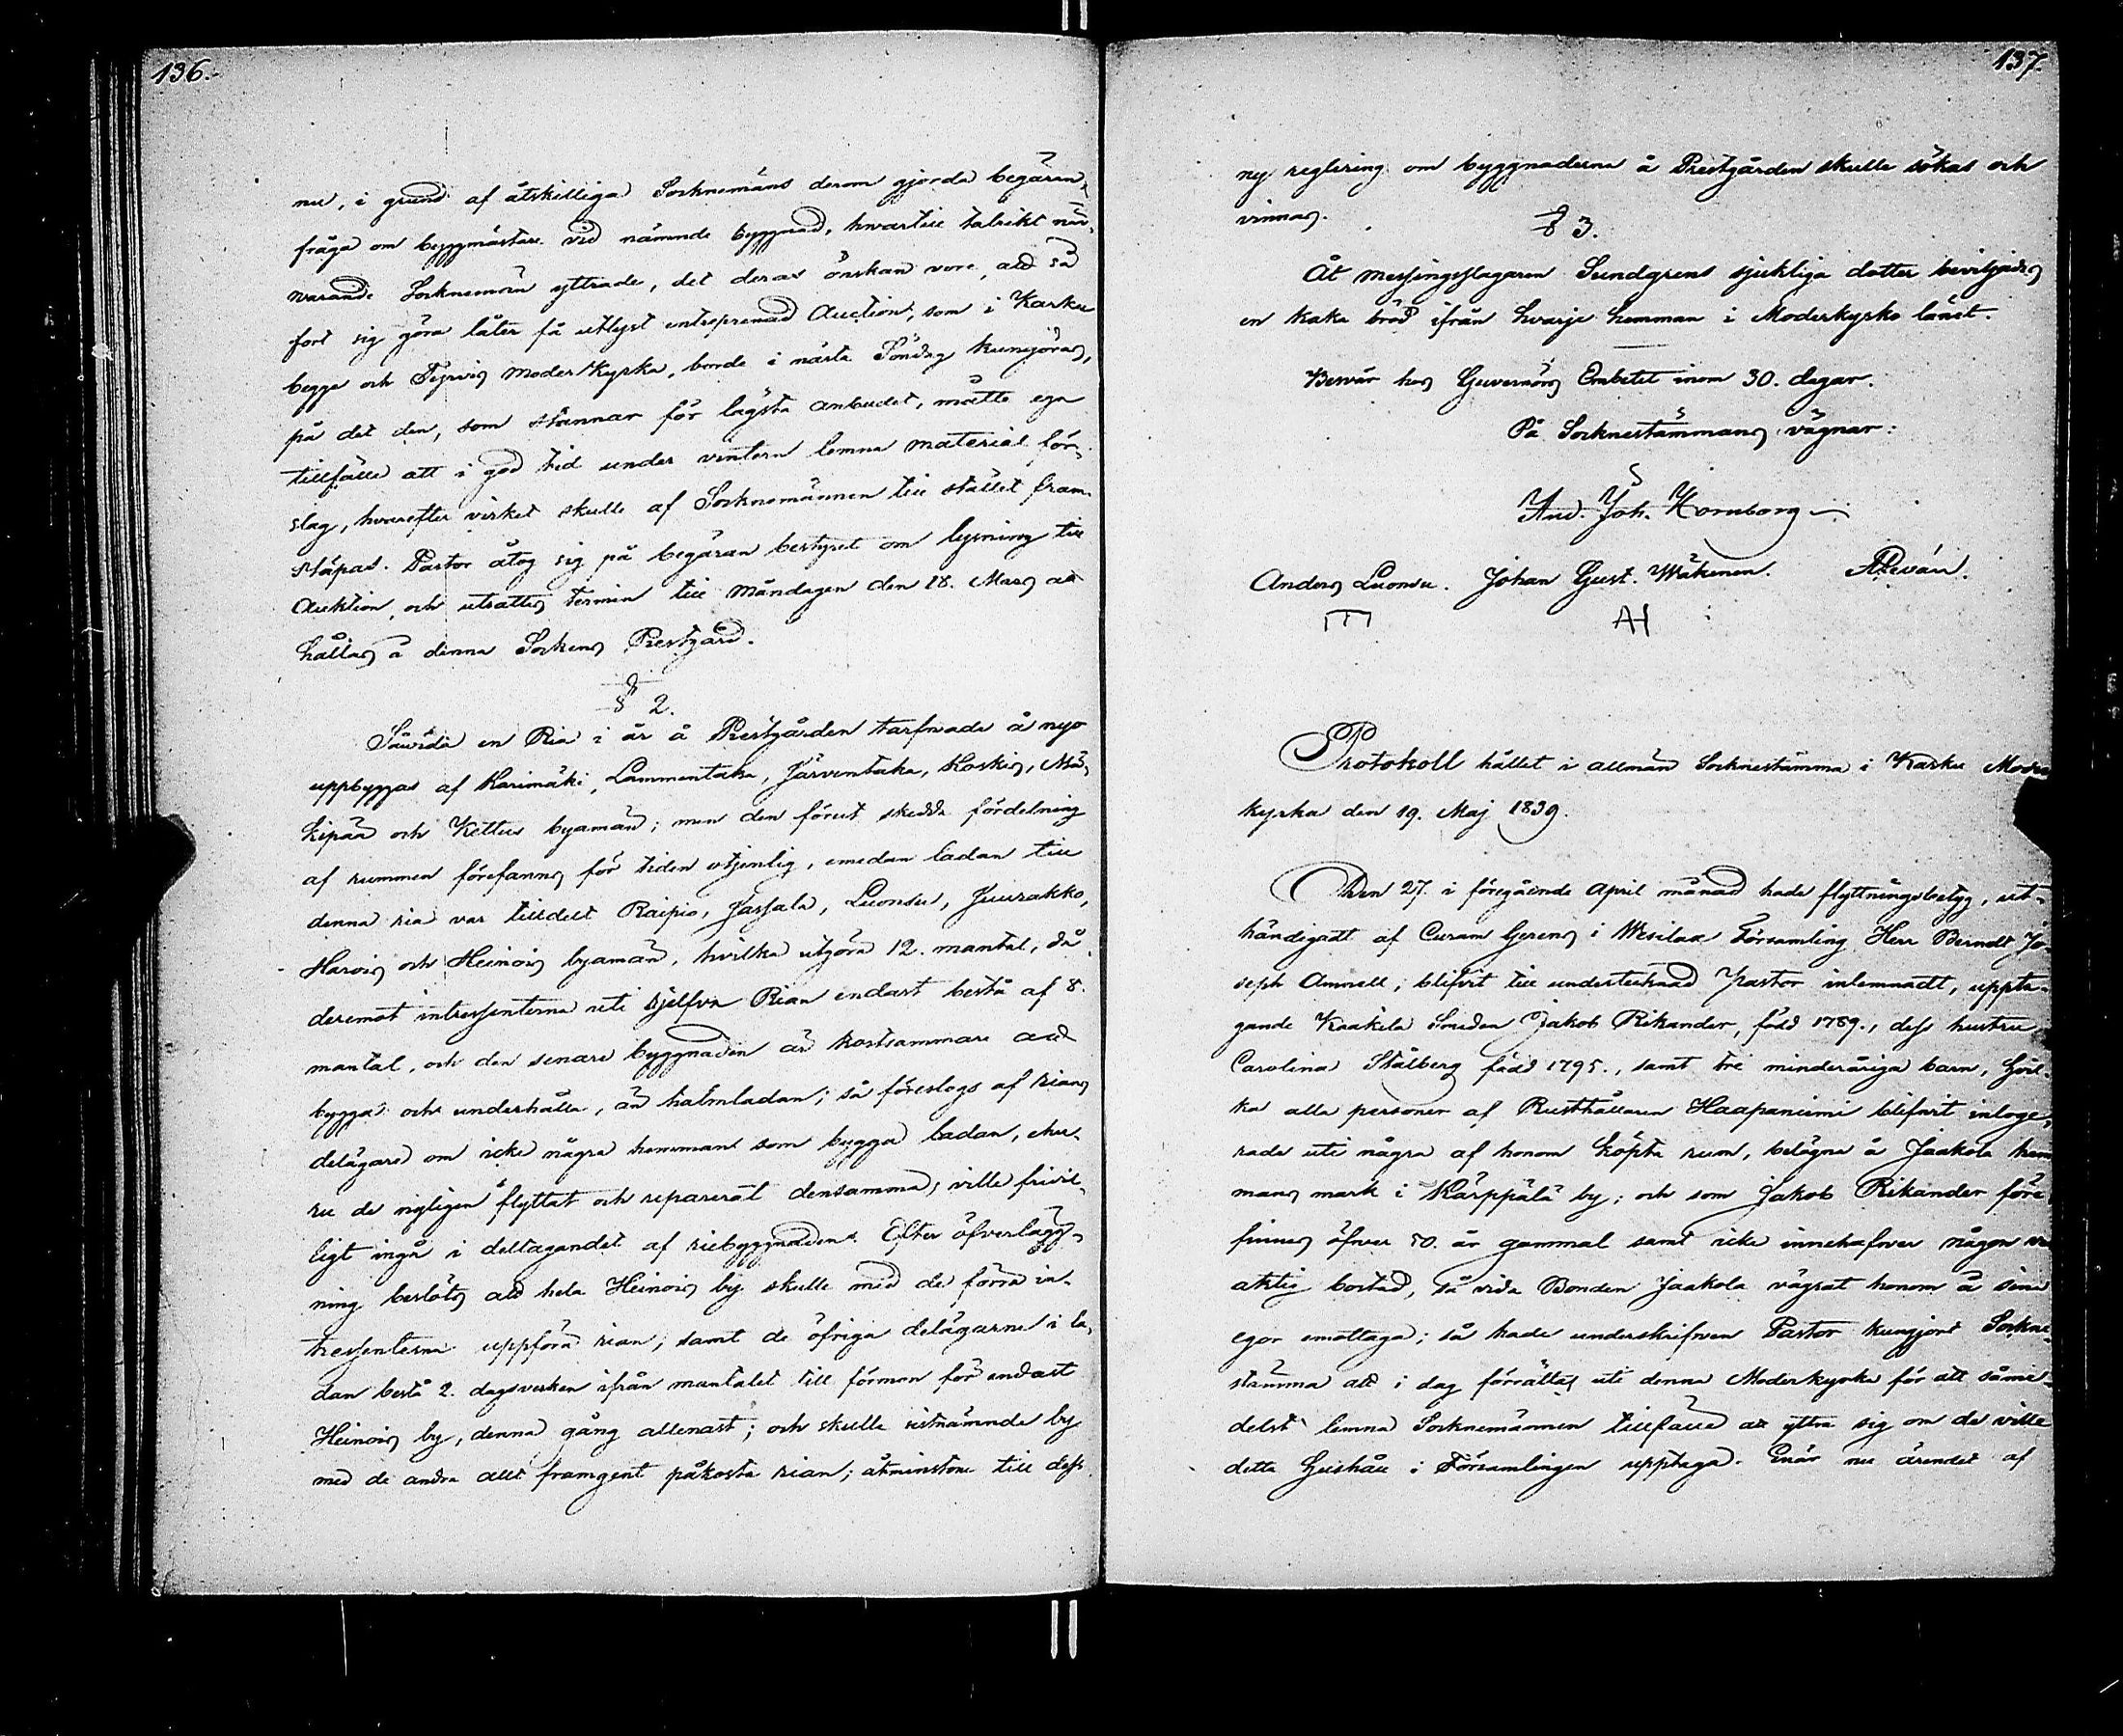 136.
nu, i grund af åtskilliga Socknemäns derom gjorda begäran,
fråga om byggmästare vid nämnde byggnad, hwartill talrikt när-
warande Socknemän yttrade, det deras önskan vore, att så
fort sig göra låter få utlyst entreprenad Auction, som i Karku
begge och Tyrvis Moder Kyrka, borde i nästa Söndag kungöras,
på det den, som stannar för lägsta anbudet, måtte ega
tillfälle att i god tid under vintern lemna material för-
slag, hvarefter virket skulle af Socknemännen till stället fram-
släpas. Pastor åtog sig på begäran bestyret om lysning till
Auktion, och utsattes termin till Måndagen den 18. Mars att
hållas å denna Sockens Prestgård.
§ 2.
Såvida en Ria i år å Prestgården tarfwade å nyo
uppbyggas af Karimäki, Lammentaka, Järventaka, Koskis, Mä-
kipää och Kettus byamän; men den förut skedda fördelning
af rummen förefanns för tiden otjenlig, emedan ladan till
denna ria var tilldelt Raipio, Jassala, Luonsu, Juurakko,
Harois och Heinois byamän, hvilka utgöra 12. mantal, då
deremot intressenterna uti sjelfva Rian endast bestå af 8.
mantal, och den senare byggnaden är kostsammare att
bygga och underhålla, än halmladan; så föreslogs af rians
delägare om icke några hemmans som bygga ladan, ehu-
ru de nyligen flyttat och reparerat densamma, ville frivil-
ligt ingå i deltagandet af riebyggnaden. Efter öfverlägg-
ning beslöts att hela Heinois by skulle med de förra in-
tressenterna uppföra rian, samt de öfriga delägarne i la-
dan bestå 2. dagsverken ifrån mantalet till förmon för endast
Heinois by, denna gång allenast; och skulle sistnämnde by
med de andra allt framgent påkosta rian; åtminstone till dess
137.
ny reglering om byggnaderna å Prestgården skulle sökas och
vinnas.
§ 3.
Åt messingsslagaren Sundgrens sjukliga dotter beviljades
en kaka bröd ifrån hvarje hemman i Moderkyrko länet.
Besvär hos Guvernörs Embetet inom 30. dagar.
På Socknestämmans vägnar:
And. Joh. Hornborg
Anders Luonsu. Johan Gust. Mäkinen.
AH
Protokoll hållet i allmän Socknestämma i Karku Moder
kyrka den 19. Maj 1839.
Den 27. i föregående April månad hade flyttningsbetyg, ut-
händigadt af Curam Gerens i Wesilax Församling Herr Berndt Jo-
seph Amnell, blifvit till undertecknad Pastor inlemnadt, uppta-
gande Kaakila Smeden Jakob Rikander, född 1789., dess hustru
Carolina Stålberg född 1795., samt tre minderåriga barn, hvil-
ka alla personer af Rusthållaren Haapaniemi blifvit inloge-
rade uti några af honom köpta rum, belägne å Jaakola hem
mans mark i Kärppälä by; och som Jakob Rikander före
finnes öfver 50. år gammal samt icke innehafver någon
aktig bostad, så vida Bonden Jaakola vägrat honom å sina
egor emottaga; så hade underskrifven Pastor kungjort Sockne-
stämma att i dag förrättas uti denna Moderkyrka för att såme-
delst lemna Socknemännen tillfälle att yttra sig om de ville
detta Hushåll i Församlingen upptaga. Enär nu ärendet af